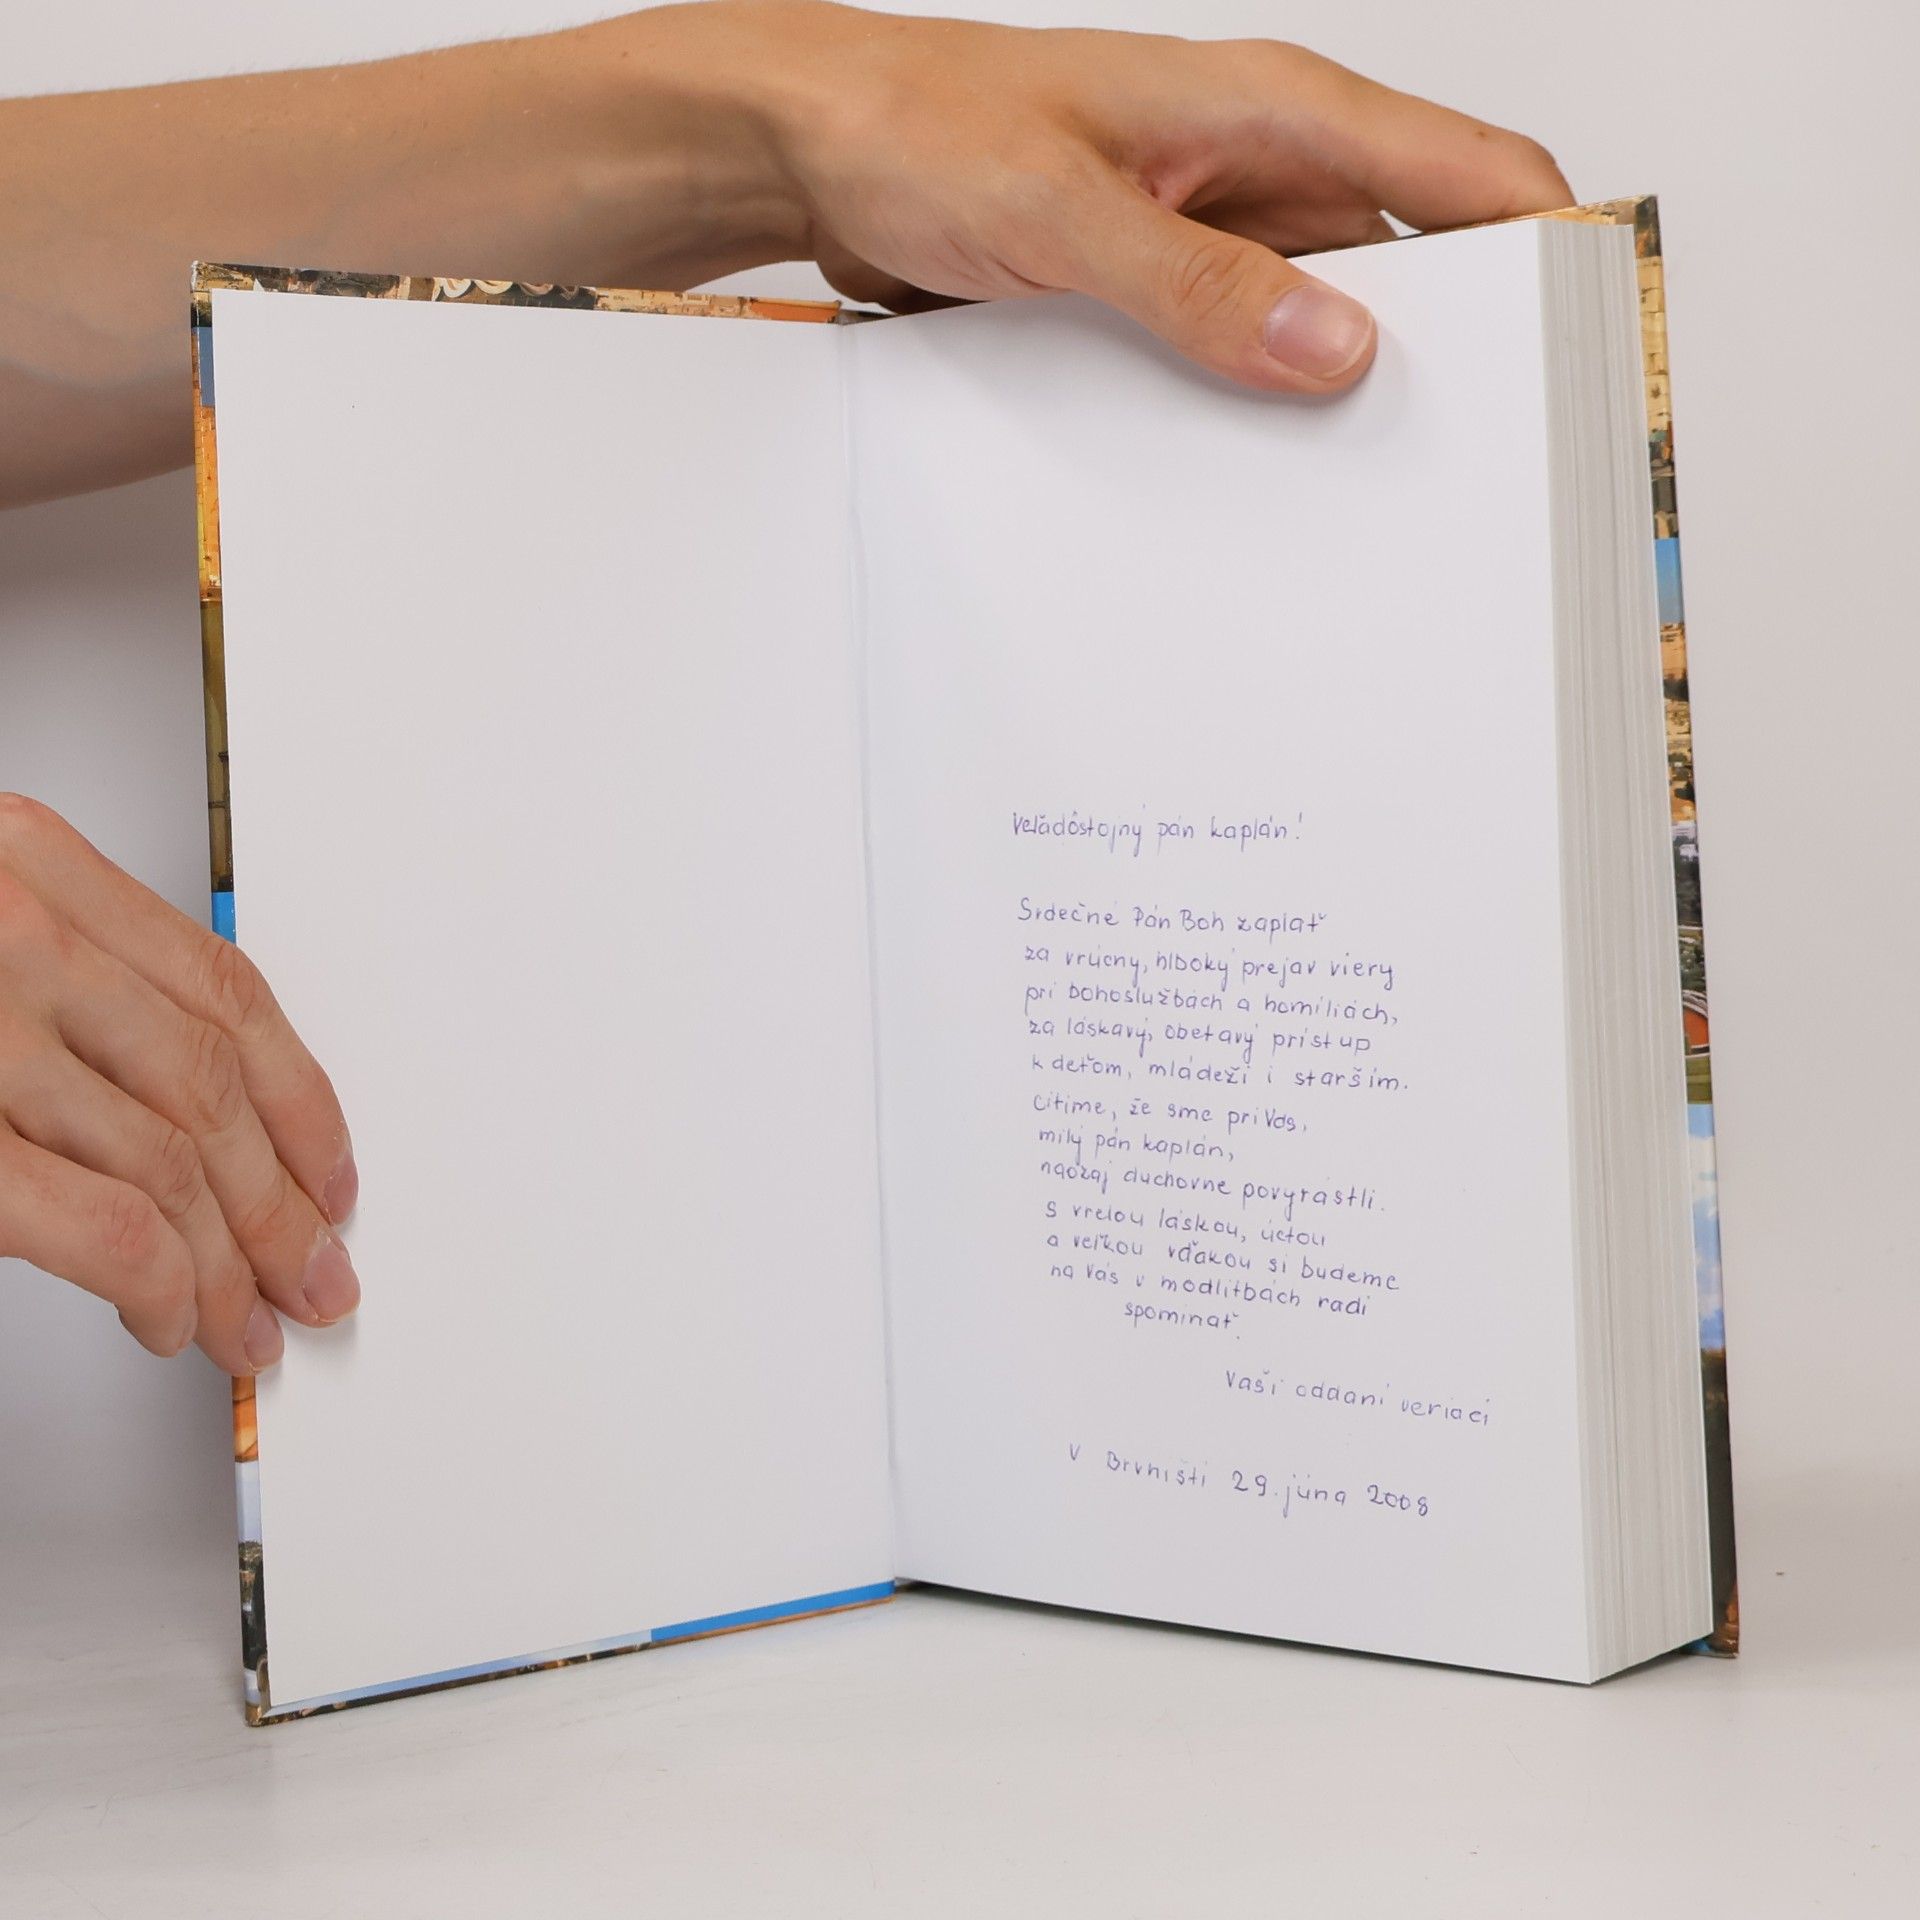 Veľadôstojný pán kaplán!
Srdečné Pán Boh zaplať
za vrúcny, hlboký prejav viery
pri bohoslužbách a homíliách,
za láskavý, obetavý prístup
k deťom, mládeži i starším.
cítime, že sme pri Vás,
milý pán kaplán,
naozaj duchovne povyrástli.
S vrelou láskou, úctou
a veľkou vďakou si budeme
na Vás v modlitbách radi
spomínať.
Vaši oddaní veriaci
V Brvništi 29. júna 2008